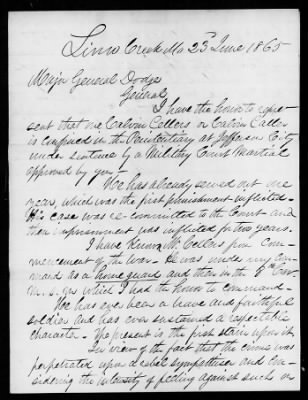 Linn Creek Mo 23d June 1865
Major General Dodge
General,
I have the honor to repre-
sent that one Calvin Cellers or Calvin Callers
is confined in the Penitentiary at Jefferson City
under sentence by a Military Court Martial
approved by you!
He has already served out one
year, which was the first punishment inflicted.
His case was re-committed to the Court and
then imprisonment was inflicted for two years.
I have known Mr Cellers from com-
mencement of the War. He was under my com-
mand as a home guard and then in the 8th Cav.
M. S. M. which I had the honor to command.
He has ever been a brave and faithful
soldier and has ever sustained a respectable
character. The present is the first stain upon it.
In view of the fact that the crime was
perpetrated upon a rebel sympathiser and con-
sidering the intensity of feeling against such